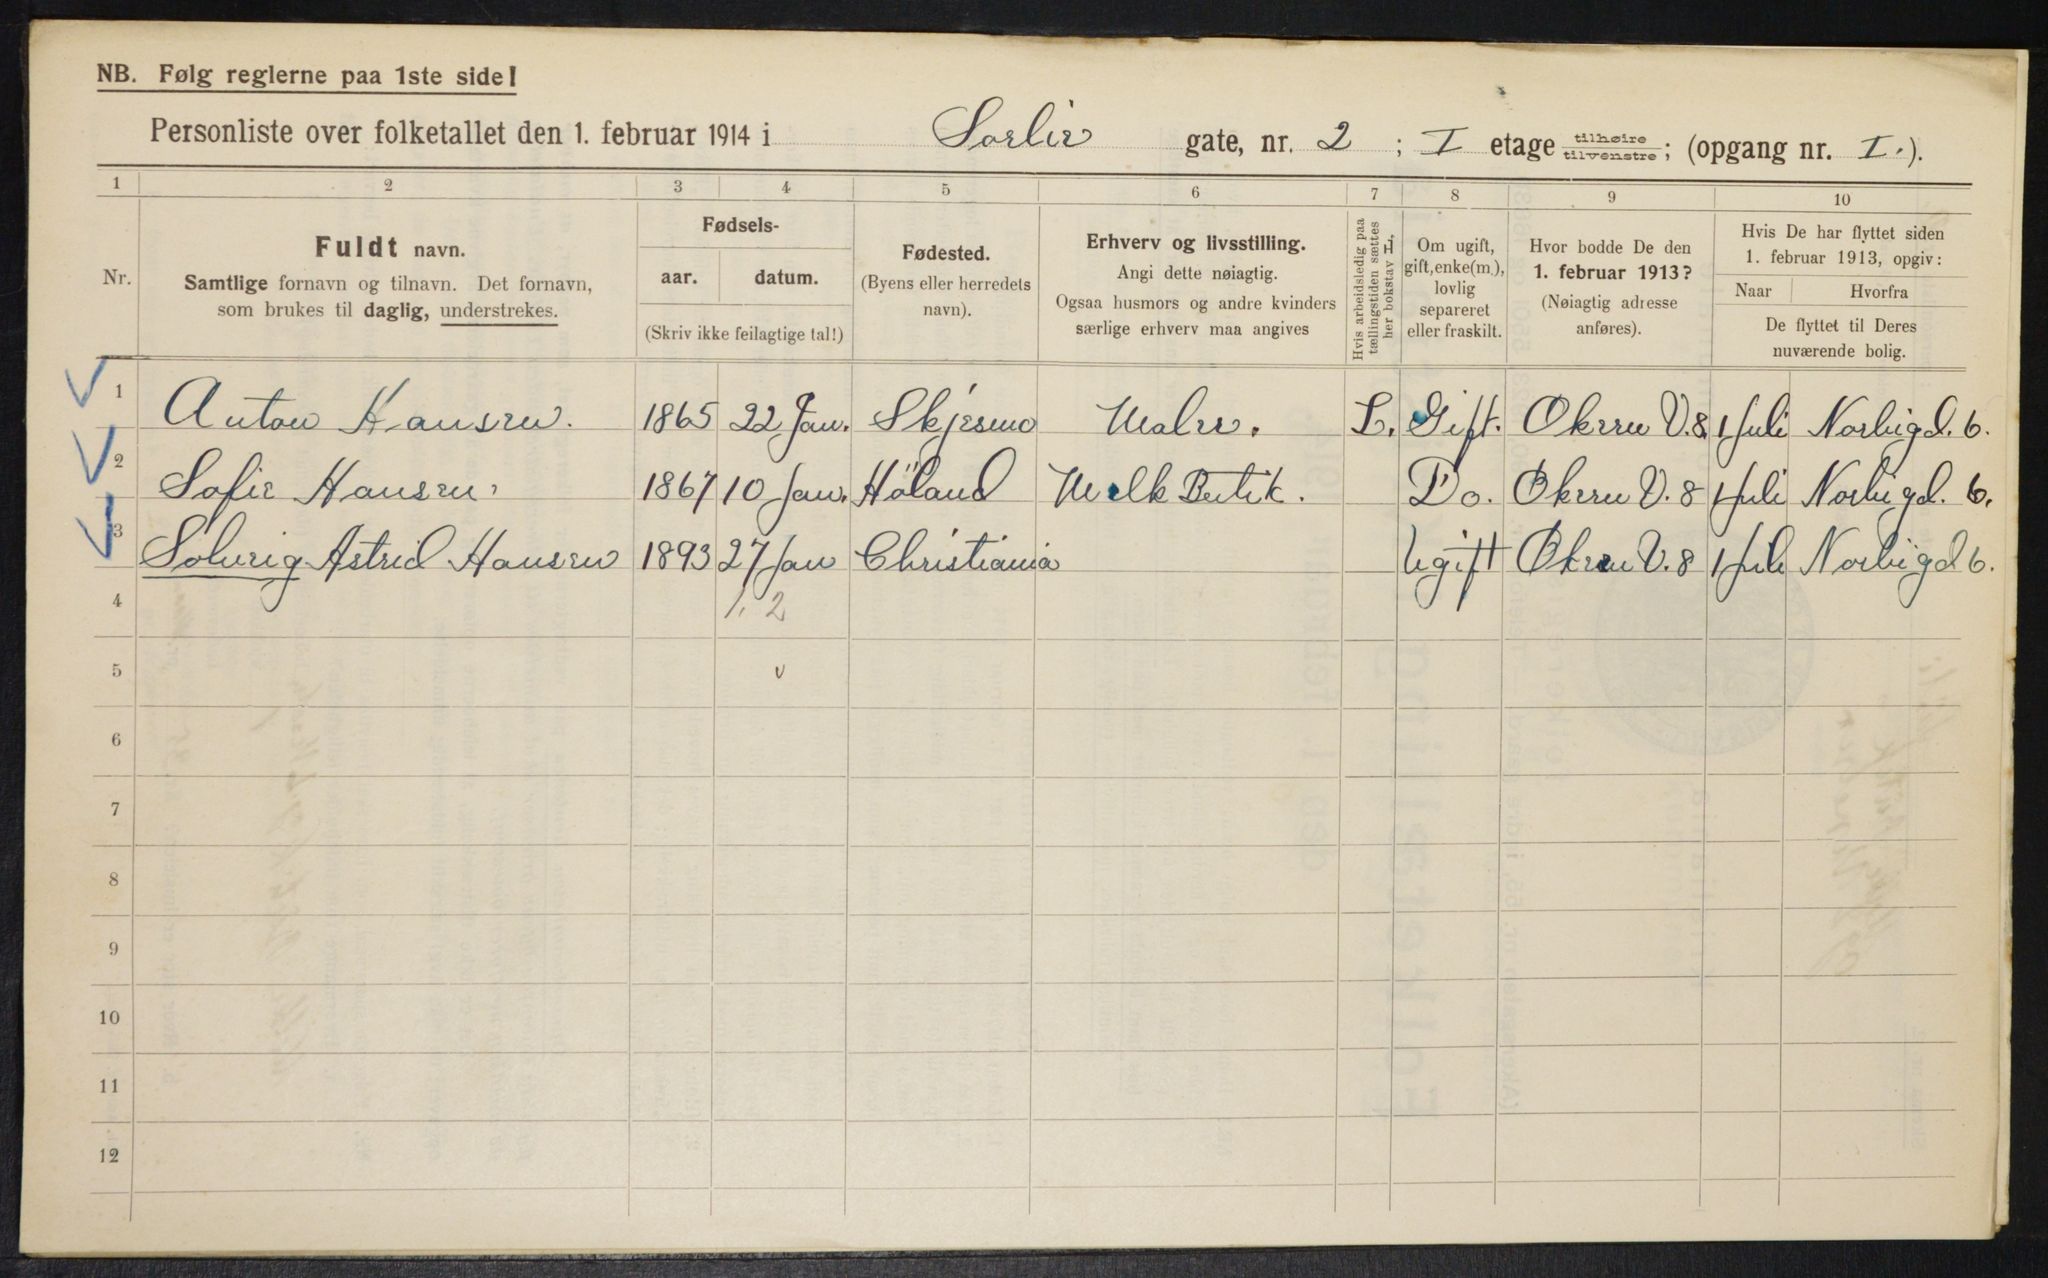 NB. Følg reglerne paa 1ste side!
Personliste over folketallet den 1. februar 1914 i Sorlie gate, nr. 2 ; I etage tilhøire/tilvenstre; (opgang nr. I.).
1 2 3 4 5 6 7 8 9 10
Nr.
Fuldt navn.
Samtlige fornavn og tilnavn. Det fornavn,
som brukes til daglig, understrekes.
Fødsels-
aar. datum.
(Skriv ikke feilagtige tal!)
Fødested.
(Byens eller herredets
navn).
Erhverv og livsstilling.
Angi dette nøiagtig.
Ogsaa husmors og andre kvinders
særlige erhverv maa angives
Hvis arbeidsledig paa
tællingstiden sættes
her bokstav L.
Om ugift,
gift, enke(m.),
lovlig
separeret
eller fraskilt.
Hvor bodde De den
1. februar 1913?
(Nøiagtig adresse
anføres).
Hvis De har flyttet siden
1. februar 1913, opgiv:
Naar Hvorfra
De flyttet til Deres
nuværende bolig.
1 Anton Hansen. 1865 22 Jan. Skjesmo Maler. L. Gift. Økern V. 8 1 Juli Norbigd. 6.
2 Sofie Hansen. 1867 10 Jan. Höland Melk Butik. Do. Økern V. 8 1 Juli Norbigd. 6.
3 Solveig Astrid Hansen 1893 27 Jan Christiania Ugift Økern V. 8 1 Juli Norbigd 6.
4 1. 2
5
6
7
8
9
10
11
12